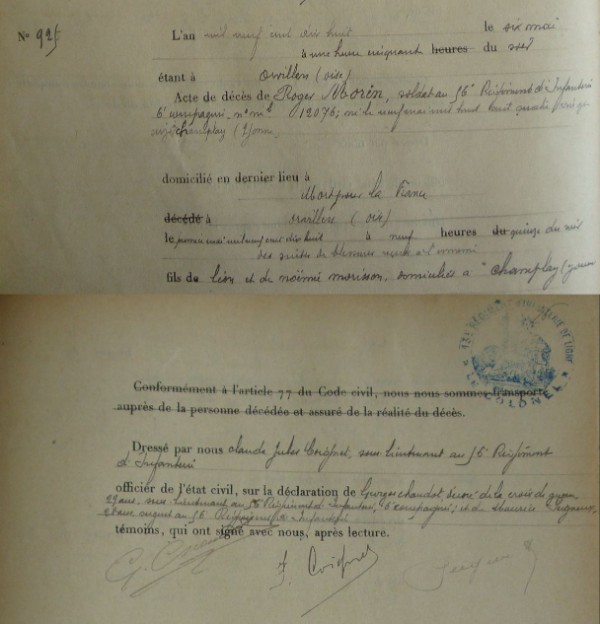 No 925
L'an mil neuf cent dix huit le six mai
à une heure cinquante heures du soir
étant à Orvillers (oise)
Acte de décès de Roger Morin, soldat au 56 Régiment d'Infanterie
6e compagnie, n° mle 12076; né le neuf mai mil huit cent quatre vingt
à Champlay (Yonne)
domicilié en dernier lieu à
Mort pour la France
décédé à Orvillers (oise)
le mai mil neuf cent dix huit à neuf heures du quinze du soir
des suites de blessures à l'ennemi
fils de Léon et de noëmie morisson, domiciliés à Champlay (Yonne
Conformément à l'article 77 du Code civil, nous nous sommes transporté
auprès de la personne décédée et assuré de la réalité du décès.
LE COLONEL
Dressé par nous claude Jules Coignet, sous lieutenant au 56 Régiment
d'Infanterie
officier de l'état civil, sur la déclaration de Georges chandot, décoré de la croix de guerre
ans, sous lieutenant au 56 Régiment d'Infanterie, 6 compagnie; et de Maurice
ans, sergent au 56 Régiment d'Infanterie
témoins, qui ont signé avec nous, après lecture.
J. Coignet